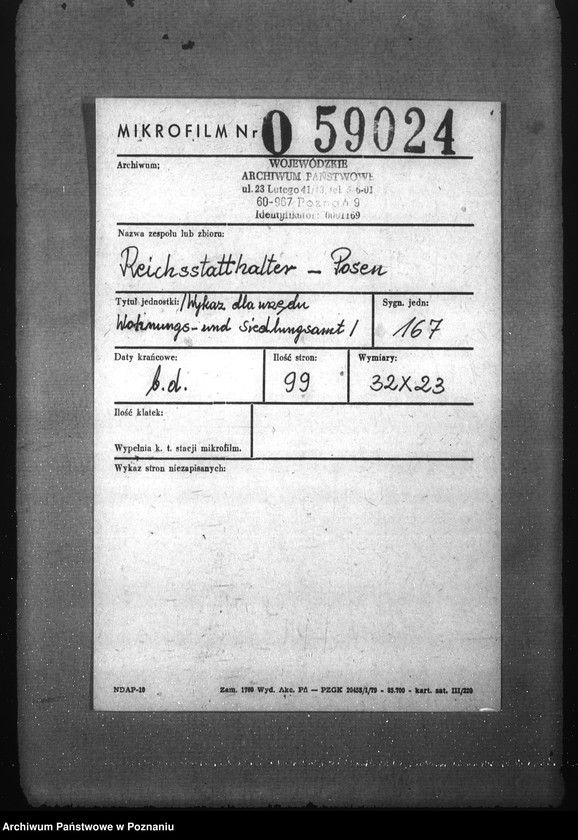 MIKROFILM Nr 0 59024
Archiwum:
WOJEWÓDZKIE
ARCHIWUM PAŃSTWOWE
ul. 23 Lutego 41/43, tel. 5-6-01
60-967 Poznań 9
Identyfikator: 0001169
Nazwa zespołu lub zbioru:
Reichsstatthalter - Posen
Tytuł jednostki: /Wykaz dla urzędu
Wohnungs- und Siedlungsamt/
Sygn. jedn:
167
Daty krańcowe:
b.d.
Ilość stron:
99
Wymiary:
32X23
Ilość klatek:
Wypełnia k. t. stacji mikrofilm.
Wykaz stron niezapisanych:
NDAP-10
Zam. 1760 Wyd. Akc. Pń — PZGK 20458/1/79 - 83.700 - kart. sat. III/250
Archiwum Państwowe w Poznaniu